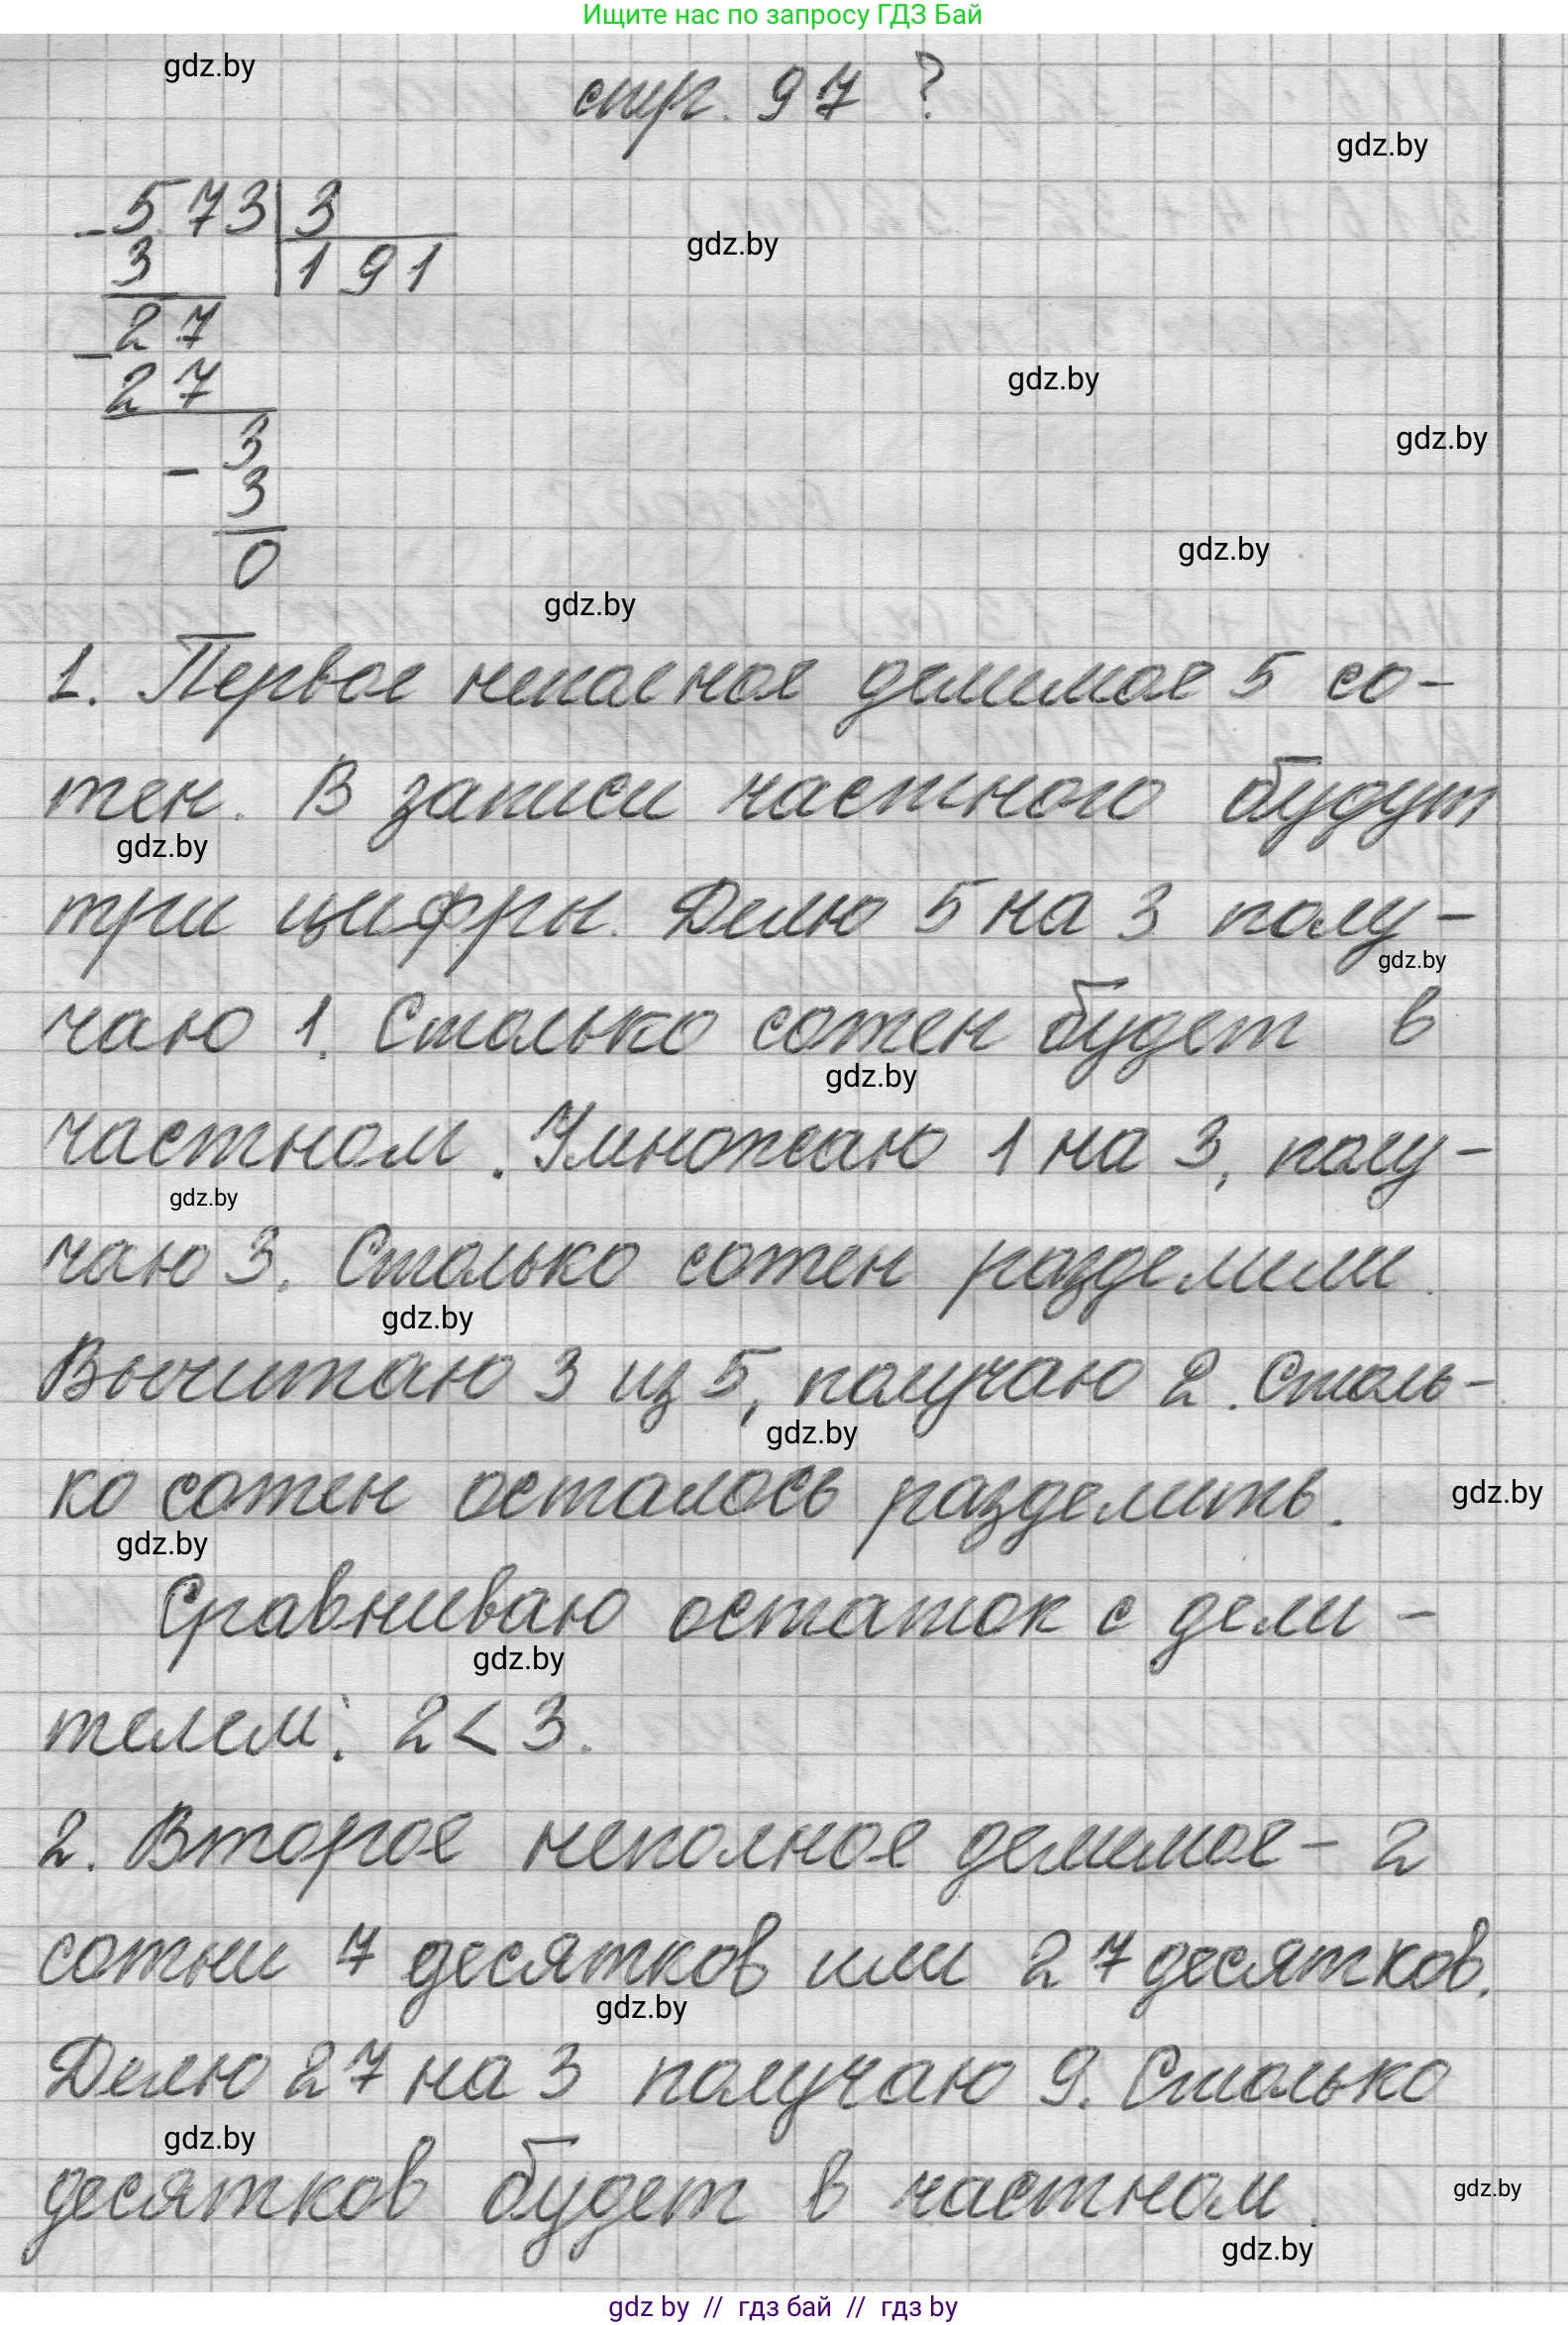 Ищите нас по запросу ГДЗ Бай
gdz.by
стр. 97 ?
gdz.by
- 573 | 3
3 | 191
gdz.by
- 27
27
gdz.by
gdz.by
- 3
3
0
gdz.by
gdz.by
1. Первое неполное делимое 5 со-
тен. В записи частного будут
gdz.by
три цифры. Делю 5 на 3 полу-
gdz.by
чаю 1. Столько сотен будет в
gdz.by
частном. Умножаю 1 на 3, полу-
gdz.by
чаю 3. Столько сотен разделили.
gdz.by
Вычитаю 3 из 5, получаю 2. Столь-
gdz.by
ко сотен осталось разделить.
gdz.by
gdz.by
Сравниваю остаток с дели-
gdz.by
телем: 2 < 3.
2. Второе неполное делимое - 2
сотни 7 десятков или 27 десятков.
gdz.by
Делю 27 на 3 получаю 9. Столько
gdz.by
десятков будет в частном.
gdz.by
gdz.by
gdz by // гдз бай // гдз by